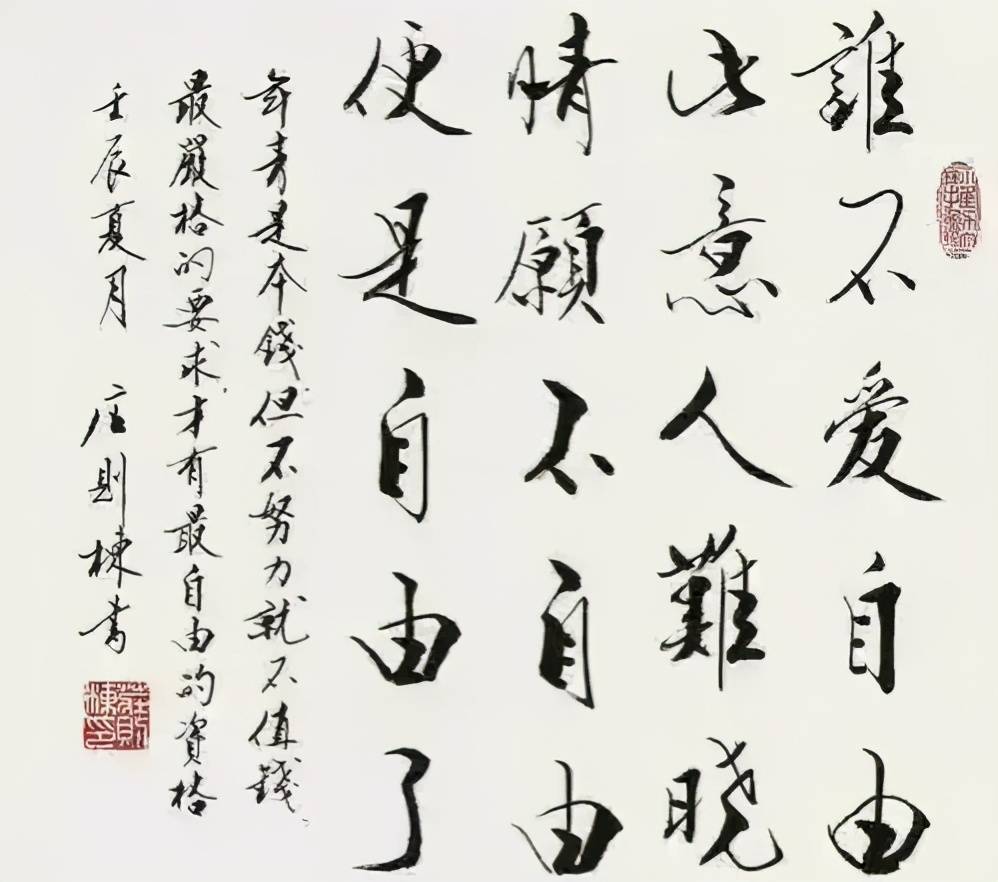 誰不爱自由
此意人難晓
情願不自由
便是自由了
年青是本錢但不努力就不值錢
最嚴格的要求,才有最自由的资格
壬辰夏月 庄则棟书
莊則棟印